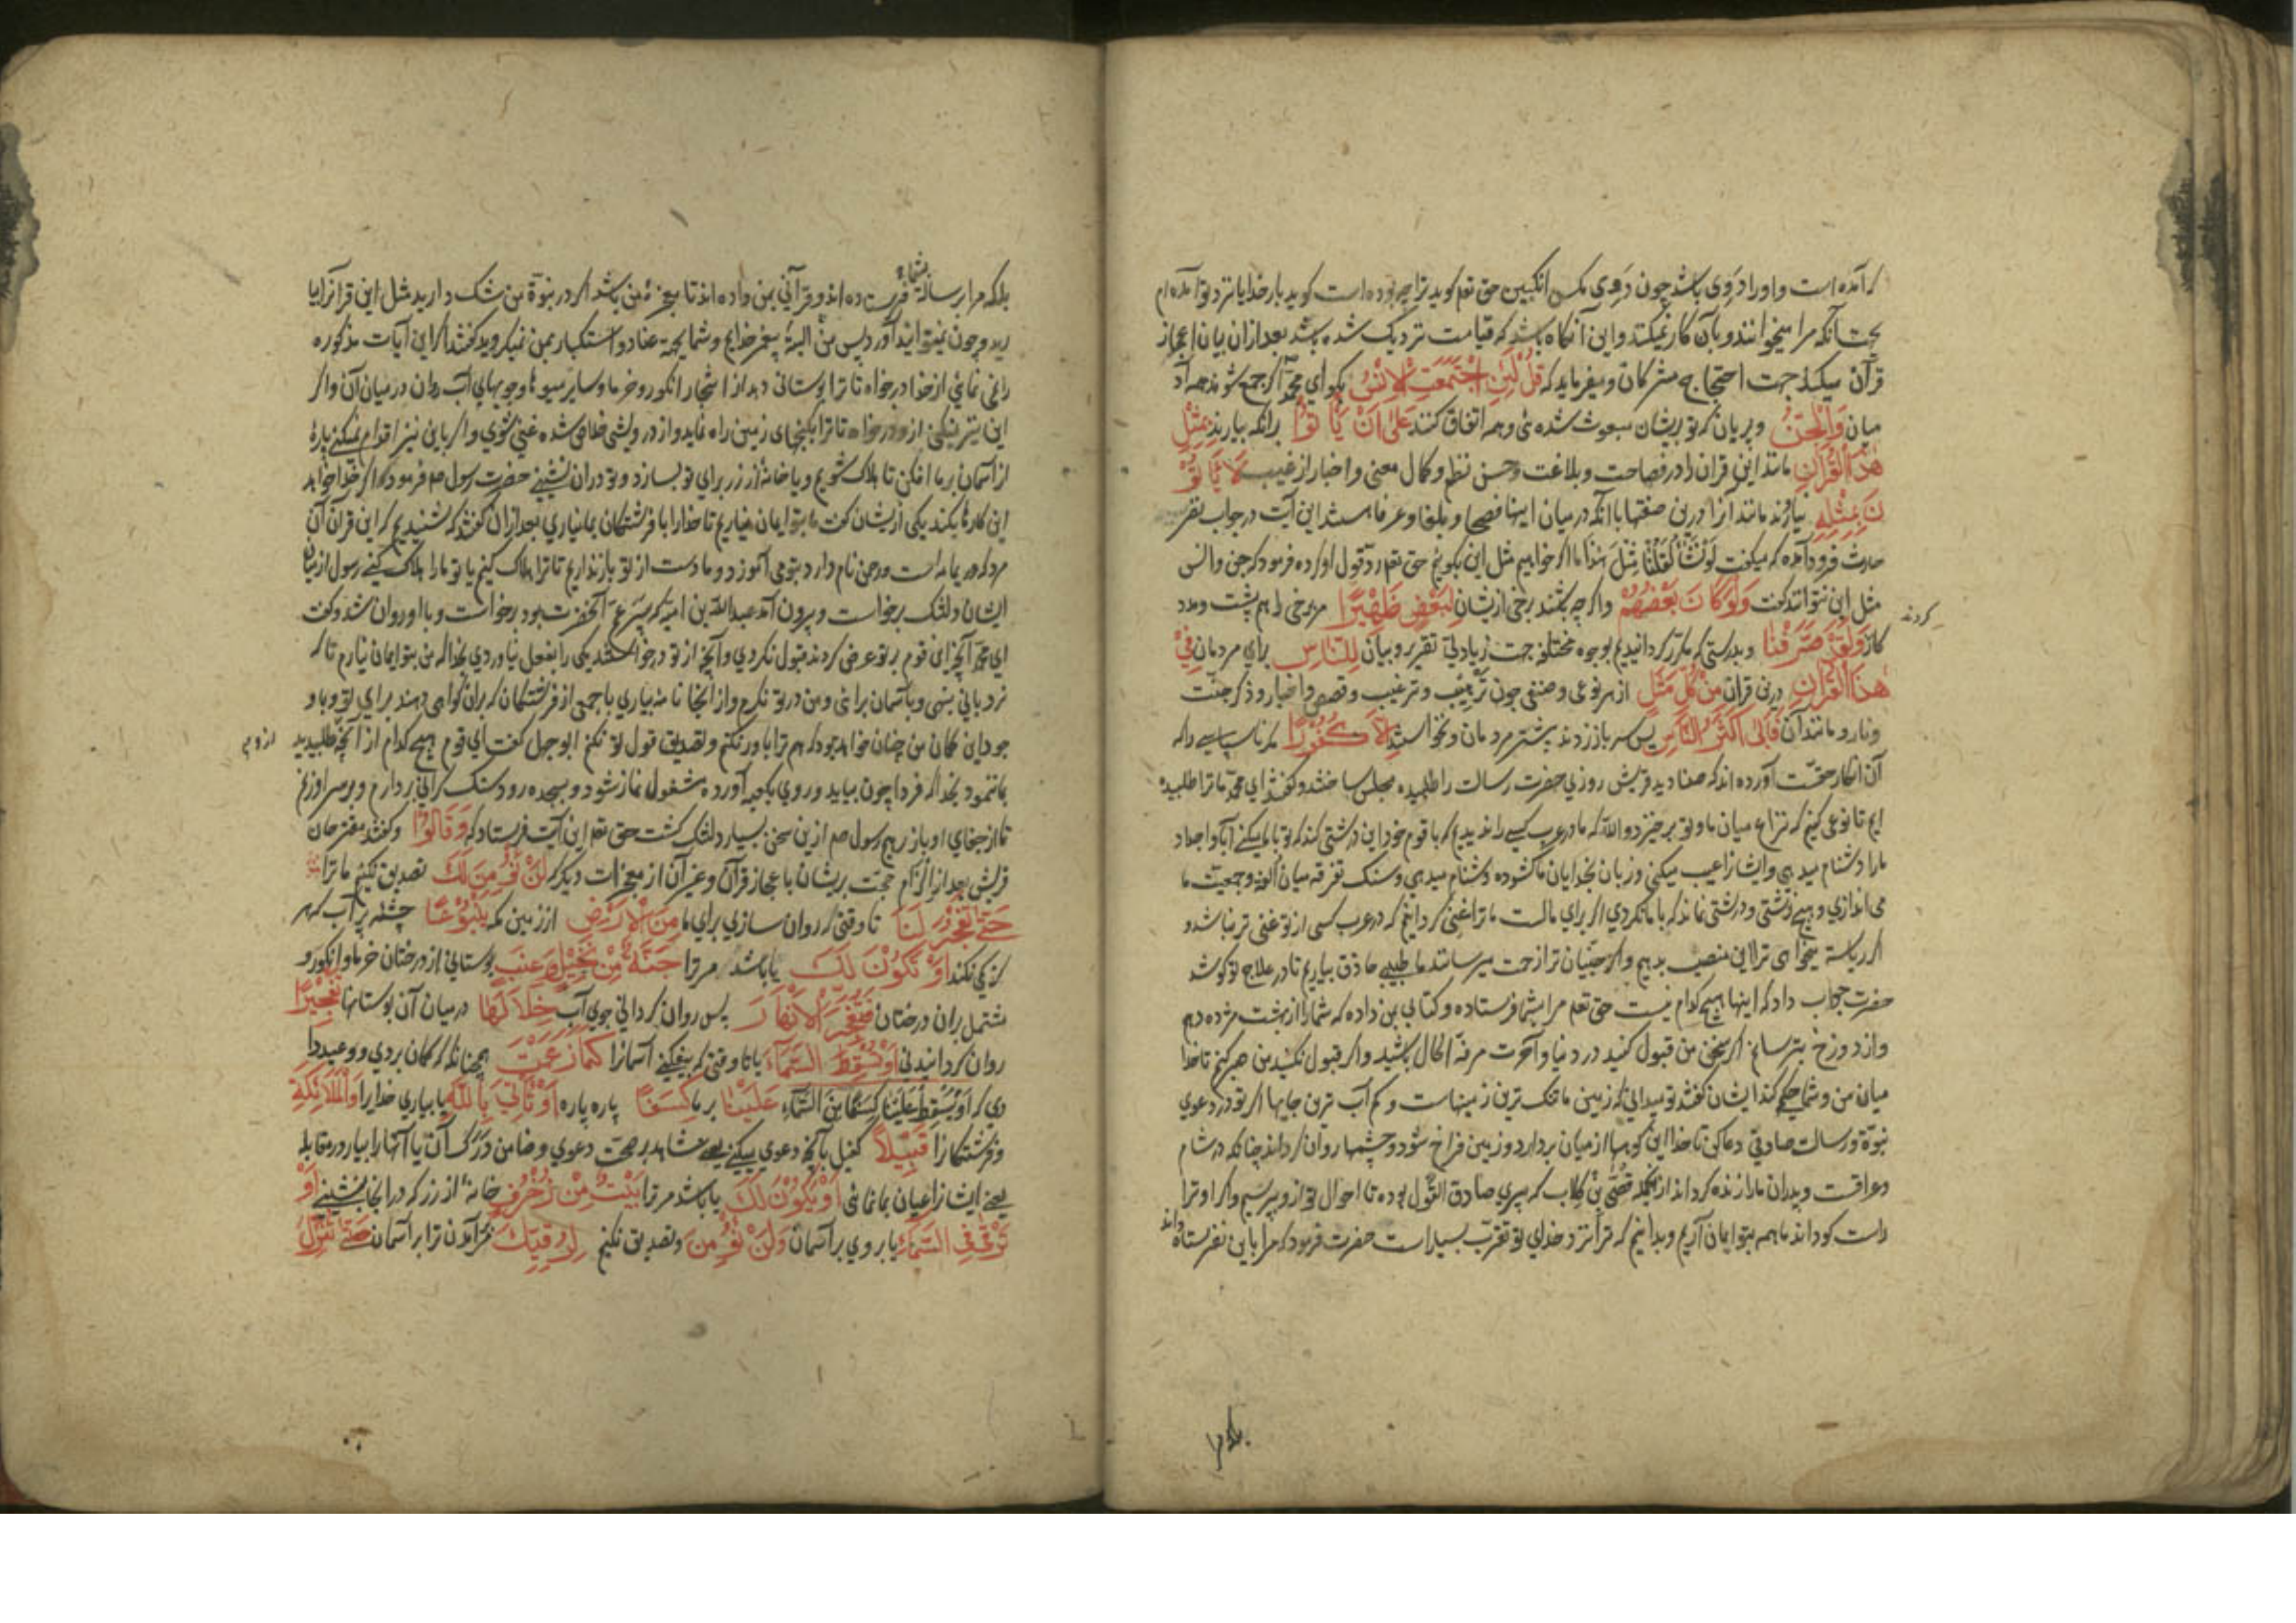 که آمده است و او را دَوِی باشد چون دَوِی مکس انکبین حق تعم کوید ترا چه بوده است کوید بار خدایا نزد تو آمده ام
بجهت آنکه مرا میخوانند و بآن کار نمیکنند و این آنکاه باشد که قیامت نزدیک شده باشد بعد ازان بیان اعجاز
قرآن میکند جهت احتجاج مشرکان و میفرماید که قُلْ لَئِنِ اجْتَمَعَتِ الْاِنْسُ بکو ای محمّد اکر جمع شوند همه آد
میان وَالْجِنُّ و پریان که تو بریشان مبعوث شده ئی و همه اتفاق کنند عَلٰی اَنْ یَاْ تُوْا برانکه بیارند بِمِثْلِ
هٰذَا الْقُرْاٰنِ مانند این قران را در فصاحت و بلاغت و حسن نظم و کمال معنی و اخبار از غیب لَا یَاْ تُوْ
نَ بِمِثْلِهٖ نیاورند مانند آنرا درین صفتها با آنکه در میان اینها فصحا و بلغا و عرفا هستند این آیت در جواب نضر
حارث فرود آمده که میکفت لَوْ نَشَآءُ لَقُلْنَا مِثْلَ هٰذَا ما اکر خواهیم مثل این بکوییم حق تعم رد قول او کرده فرمود که جن و انس
مثل این نتوانند کفت وَلَوْ کَانَ بَعْضُهُمْ و اکر چه باشند برخی ازیشان لِبَعْضٍ ظَهِیْرًا مر برخی را هم پشت و مدد
کردند
کار وَلَقَدْ صَرَّفْنَا و بدرستی که مکرر کردانیدیم بوجوه مختلفه جهت زیادتی تقریر و بیان لِلنَّاسِ برای مردمان فِیْ
هٰذَا الْقُرْاٰنِ درین قران مِنْ کُلِّ مَثَلٍ از هر نوعی و صنفی چون ترهیب و ترغیب و قصص و اخبار و ذکر جنّت
و نار و مانند آن فَاَبٰی اَکْثَرُ النَّاسِ پس سر باز زدند بیشتر مردمان و نخواستند اِلَّا کُفُوْرًا مکر ناسپاسی را که
آن انکار حقّست آورده اند که صنادید قریش روزی حضرت رسالت را طلبیده مجلس ساختند و کفتند ای محمّد ما ترا طلبیده
ایم تا نوعی کنیم که نزاع میان ما و تو برخیزد والله که ما در عرب کسی را ندیدیم که با قوم خود این درشتی کند که تو با ما میکنی آبا و اجداد
ما را دشنام میدهی و ایشانرا عیب میکنی و زبان بخدایان ما کشوده دشنام میدهی و سنک تفرقه میان الفت و جمعیت ما
می اندازی و هیچ زشتی و درشتی نماند که با ما نکردی اکر برای مالست ما ترا غنی کردانیم که در عرب کسی از تو غنی تر نباشد و
اکر ریاست میخواهی ترا این منصب بدهیم و اکر جنّیان ترا زحمت میرسانند ما طبیبی حاذق بیاریم تا در علاج تو کوشد
حضرت جواب داد که اینها هیچ کدام نیست حق تعم مرا بشما فرستاده و کتابی بمن داده که شما را از بهشت مژده دهم
و از دوزخ بترسانم اکر سخن من قبول کنید در دنیا و آخرت مرفّه الحال باشید و اکر قبول نکنید من صبر کنم تا خدا
میان من و شما حکم کند ایشان کفتند تو میدانی که زمین ما تنک ترین زمینهاست و کم آب ترین جایها اکر تو در دعوی
نبوّة و رسالت صادقی دعا کن تا خدا این کوهها از میان بردارد و زمین فراخ شود و چشمها روان کرداند چنانکه در شام
و عراقست و پدران ما را زنده کرداند از آنجمله قُصَیّ بن کِلاب که پیری صادق القول بوده تا احوال تو از و پرسیم و اکر او ترا
راست کو داند ما همه بتو ایمان آریم و بدانیم که ترا نزد خدای تو تقرّب بسیار است حضرت فرمود که مرا باین نفرستاده اند
بلکه مرا
بلکه مرا برسالة بشما فرستاده اند و قرآنی بمن داده اند تا معجزهٔ من باشد اکر در نبوّة من شک دارید مثل این قرآن بیا
رید و چون نمیتوانید آورد پس من البته پیغمبر خدایم و شما بجهة عناد و استکبار بمن نمیکروید کفتند اکر این آیات مذکوره
را نمی نمائی از خدا در خواه تا ترا بوستانی دهد از اشجار انکور و خرما و سایر میوها و جویهای آب روان در میان آن و اکر
این نیز نمیکنی از و در خواه تا ترا بکنجهای زمین راه نماید و از درویشی خلاص شده غنی شوی و اکر باین نیز اقدام نمیکنی پارهٔ
از آسمان بر ما افکن تا هلاک شویم و یا خانهٔ از زر برای تو بسازد و تو دران نشینی حضرت رسول صم فرمود که اکر خدا خواهد
این کارها بکند یکی ازیشان کفت ما بتو ایمان نیاریم تا خدا را با فرشتکان بما نیاری بعد ازان کفتند که شنیدیم که این قرآن آن
مرد که در یمامه است و رحمن نام دارد بتو می آموزد و ما دست از تو باز نداریم تا ترا هلاک کنیم یا تو ما را هلاک کنی رسول از میان
ایشان دلتنک برخواست و بیرون آمد عبدالله بن امیه که پسر عمّ آنحضرت بود برخواست و با او روان شد و کفت
ای محمّد آنچه این قوم بر تو عرض کردند قبول نکردی و آنچه از تو درخواستند یکی را بفعل نیاوردی بخدا که من بتو ایمان نیارم تا که
نردبانی بنهی و بآسمان برائی و من در تو نکرم و از آنجا نامه بیاری با جمعی از فرشتکان که بران کواهی دهند برای تو و با و
جود این کمان من چنان خواهد بود که هم ترا باور نکنم و تصدیق قول تو نکنم ابو جهل کفت ای قوم هیچ کدام از آنچه طلبیدید
بما ننمود بخدا که فردا چون بیاید و روی بکعبه آورده مشغول نماز شود و بسجده رود سنک کرانی بردارم و بر سر او زنم
تا از جفای او باز رهیم رسول صم ازین سخن بسیار دلتنک کشت حق تعم این آیت فرستاد که وَقَالُوْا و کفتند مقترحان
قریش بعد از الزام حجّت بریشان باعجاز قرآن و غیر آن از معجزات دیکر که لَنْ نُؤْمِنَ لَکَ تصدیق نکنیم ما ترا
حَتّٰی تَفْجُرَ لَنَا تا وقتی که روان سازی برای ما مِنَ الْاَرْضِ از زمین مکه یَنْبُوْعًا چشمه پر آب که هر
کز کمی نکند اَوْ تَکُوْنَ لَکَ یا باشد مر ترا جَنَّةٌ مِنْ نَخِیْلٍ وَّعِنَبٍ بوستانی از درختان خرما و انکور و
مشتمل بران درختان فَتُفَجِّرَ الْاَنْهَارَ پس روان کردانی جوی آب خِلَالَهَا در میان آن بوستانها تَفْجِیْرًا
روان کردانیدنی اَوْ تُسْقِطَ السَّمَآءَ یا تا وقتی که بیفکنی آسمانرا کَمَا زَعَمْتَ همچنانکه کمان بردی و وعید دا
دی که اَوْ نُسْقِطْ عَلَیْنَا کِسَفًا مِنَ السَّمَآءِ عَلَیْنَا بر ما کِسَفًا پاره پاره اَوْ تَاْتِیَ بِاللّٰهِ یا بیاری خدایرا وَالْمَلٰٓئِکَةِ
و فرشتکانرا قَبِیْلًا کفیل بآنچه دعوی میکنی یعنی شاهد بر صحت دعوی و ضامن درک آن یا آنها را بیار در مقابله
یعنی ایشانرا عیان بما نمائی اَوْ یَکُوْنَ لَکَ یا باشد مر ترا بَیْتٌ مِنْ زُخْرُفٍ خانهٔ از زر که در انجا بنشینی اَوْ
تَرْقٰی فِی السَّمَآءِ یا بر روی بر آسمان وَلَنْ نُؤْمِنَ و تصدیق نکنیم لِرُقِیِّکَ مر بر آمدن ترا بر آسمان حَتّٰی تُنَزِّلَ